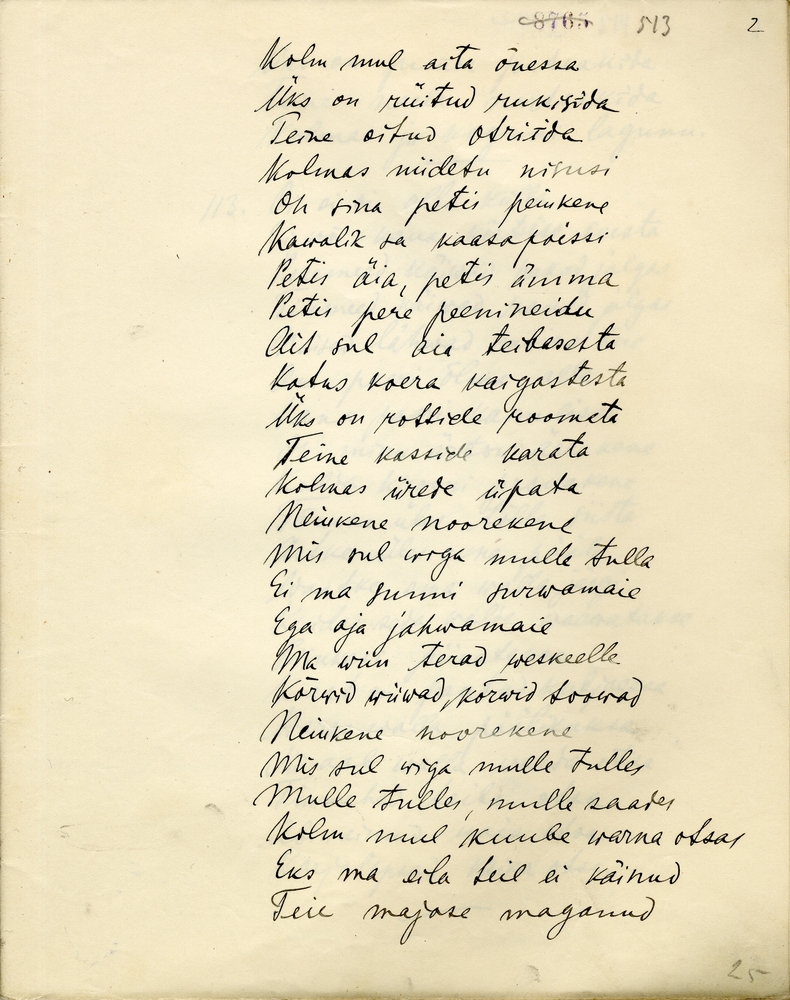 8765 513 2
Kolm mul aita õuessa
Üks on rüitud rukisida
Teine oitud otriida
Kolmas niidetu nisusi
Oh sina petis peiukene
Kawalik sa kaasapoissi
Petis äia, petis ämma
Petis pere peenineidu
Ait sul aia teibasesta
Katus koera kaigastesta
Üks on rottide roomata
Teine kasside karata
Kolmas ürede üpata
Neiukene noorekene
Mis sul wiga mulle tulla
Ei ma sunni surwamaie
Ega aja jahwamaie
Ma wiin terad weskeelle
Kõrwid wiiwad, kõrwid toowad
Neiukene noorekene
Mis sul wiga mulle tulles
Mulle tulles, mulle saades
Kolm mul kuube warna otsas
Eks ma eila teil ei käinud
Teie majase maganud
25